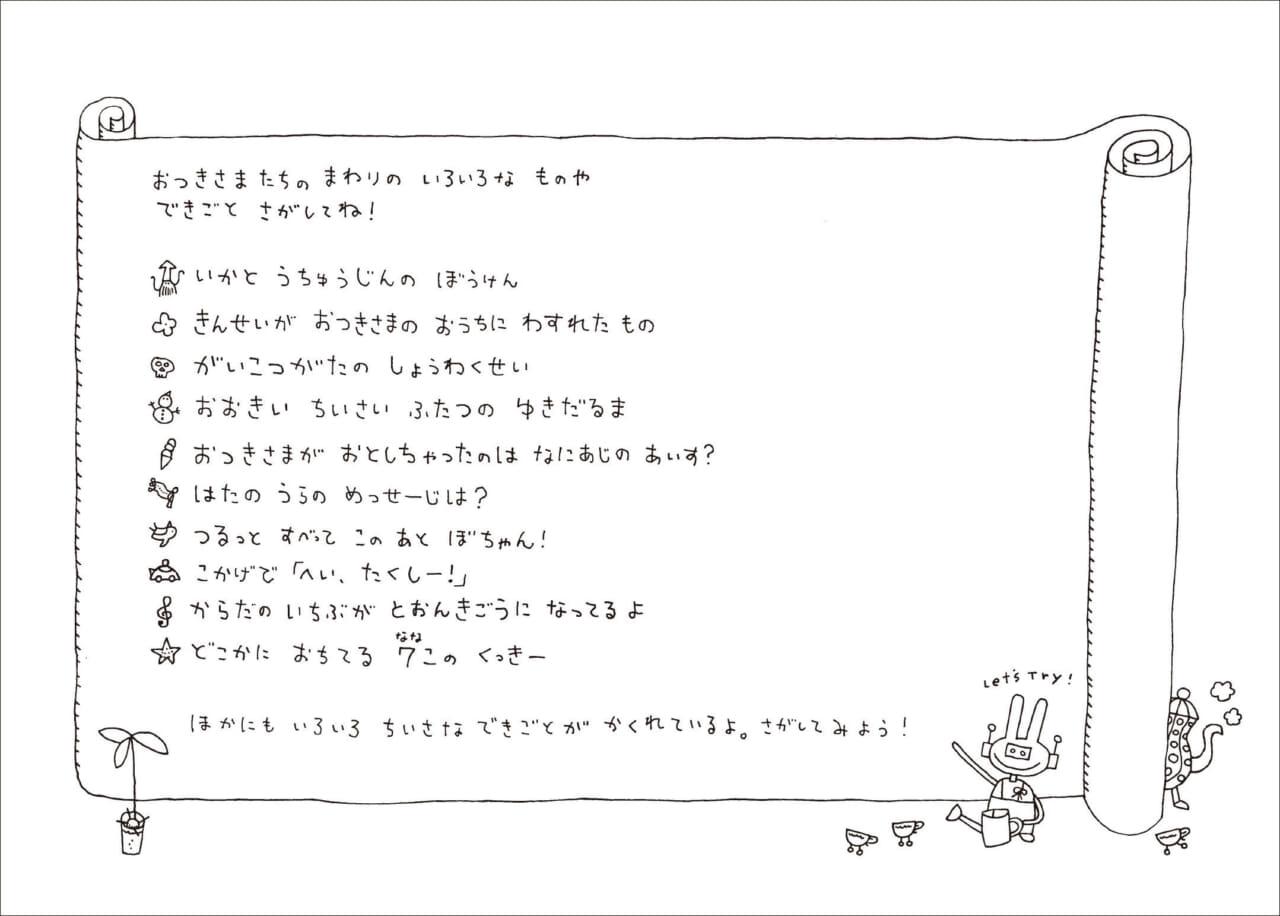 おつきさまたちの まわりの いろいろな ものや
できごと さがしてね!
いかと うちゅうじんの ぼうけん
きんせいが おつきさまの おうちに わすれた もの
がいこつがたの しょうわくせい
おおきい ちいさい ふたつの ゆきだるま
おつきさまが おとしちゃったのは なにあじの あいす?
はたの うらの めっせーじは?
つるっと すべって このあと ぼちゃん!
こかげで「へい、たくしー!」
からだの いちぶが とおんきごうに なってるよ
どこかに おちてる 7この くっきー
なな
ほかにも いろいろ ちいさな できごとが かくれているよ。さがしてみよう!
Let's Try!